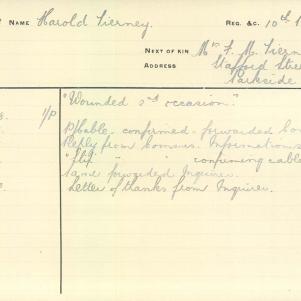 NAME Harold Tierney. REG. &C. 10th
NEXT OF KIN Mr F. M. Tierney
ADDRESS Stafford Stre
Parkside
"Wounded 2nd occasion."
1/P Cable confirmed. forwarded
Reply from
" " confirming cable
Same forwarded Inquirer.
Letter of thanks from Inquirer.